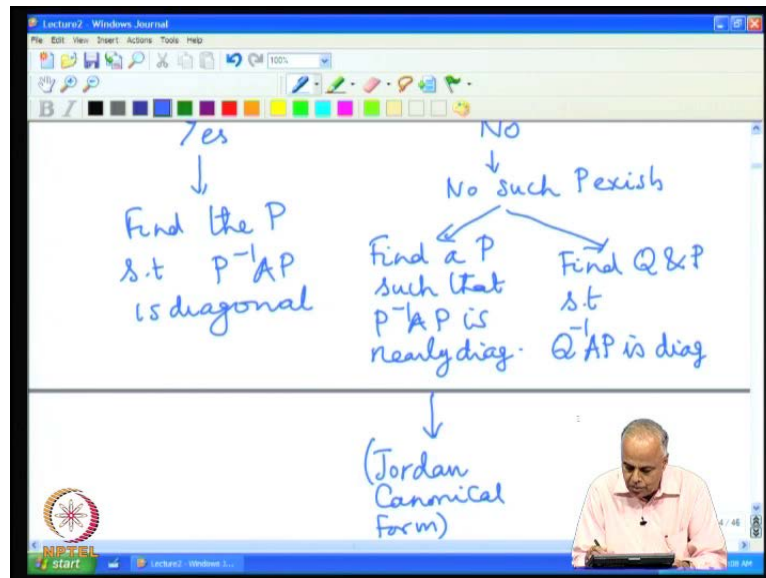 Lecture2 - Windows Journal
File Edit View Insert Actions Tools Help
100%
B I
Yes
No
No such P exists
Find the P
s.t P⁻¹AP
is diagonal
Find a P
such that
P⁻¹AP is
nearly diag.
Find Q & P
s.t
Q⁻¹AP is diag
(Jordan
Canonical
Form)
NPTEL
start
Lecture2 - Windows J...